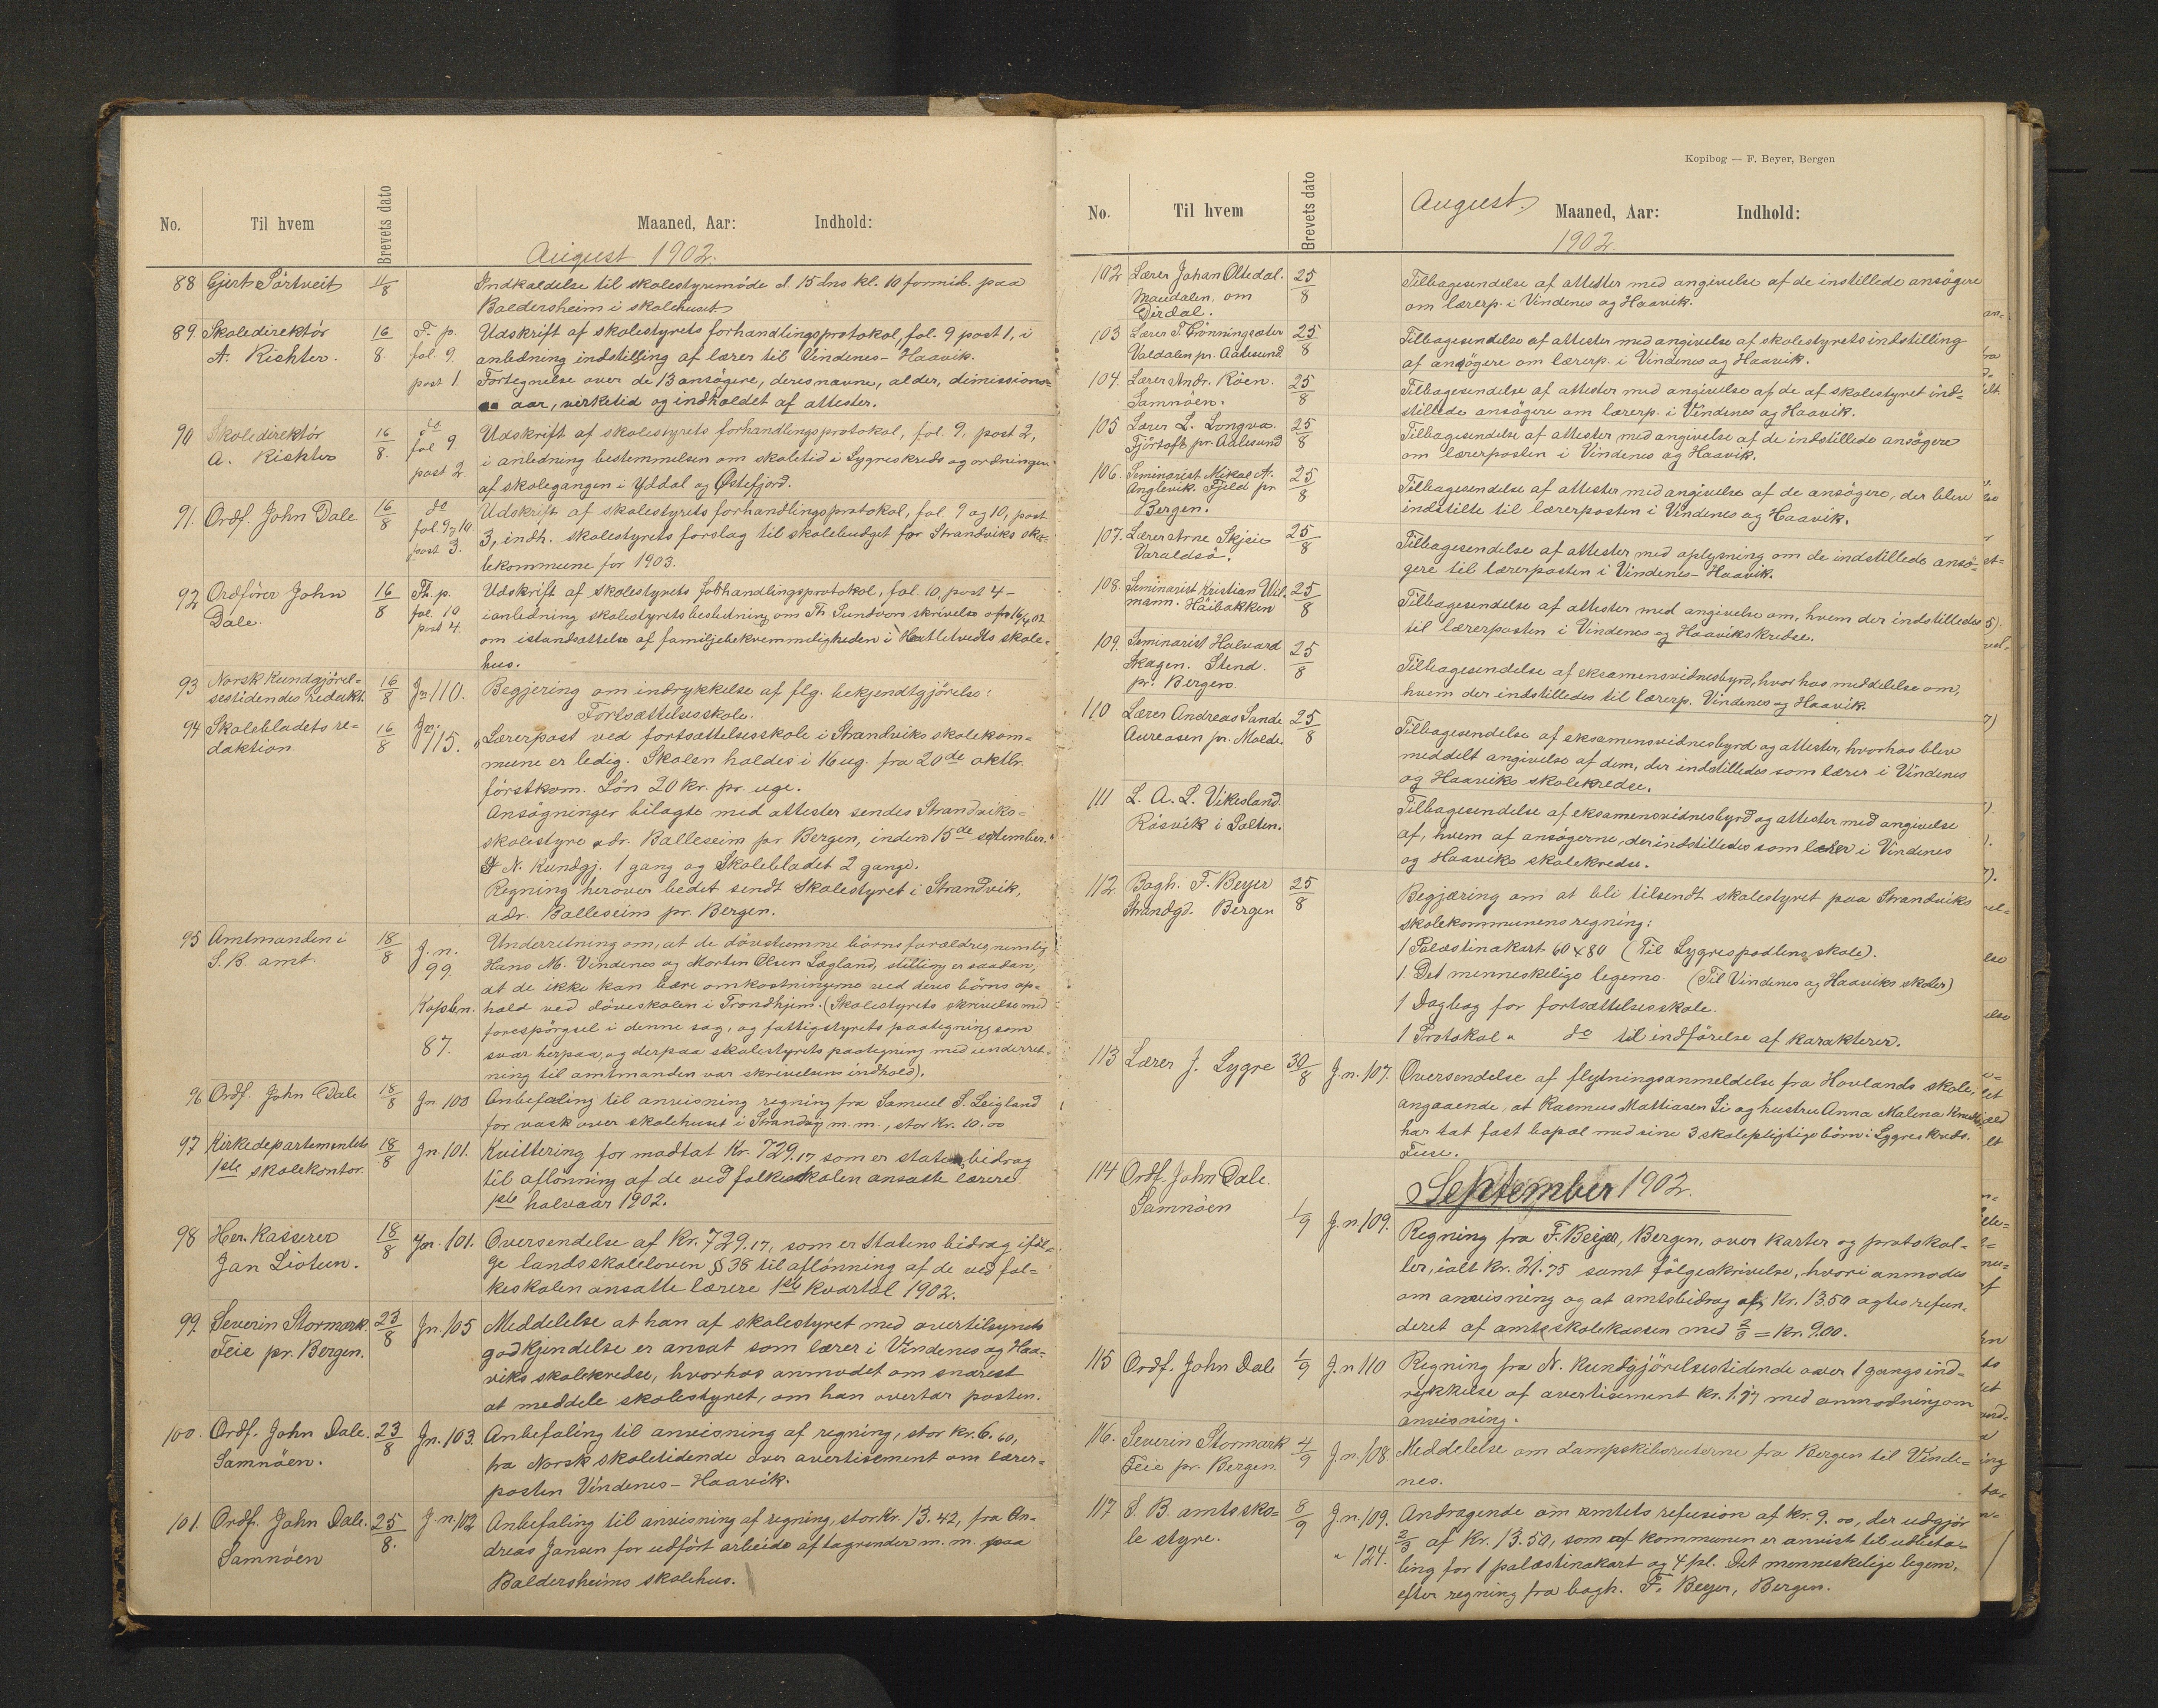 No. Til hvem Brevets dato Maaned, Aar: Indhold:
August 1902.
88 Gjert Pörtveit 11/8 Indkaldelse til skolestyremöde d. 15 dns kl. 10 formid. paa
Baldersheim i skolehuset
89. Skoledirektör 16/8. F. p. Udskrift af skolestyrets forhandlingsprotokol, fol. 9 post 1, i
A. Richter. fol. 9. anledning indstilling af lærer til Vindenes-Haavik.
post 1. Fortegnelse over de 13 ansögere, deres navne, alder, dimissions-
aar, virketid og indholdet af attester.
90 Skoledirektör 16/8. do Udskrift af skolestyrets forhandlingsprotokol, fol. 9, post 2,
A. Richter fol 9. i anledning bestemmelsen om skoletid i Lygreskreds og ordningen
post 2. af skolegangen i Yddal og Østefjord.
91. Ordf. John Dale 16/8 do Udskrift af skolestyrets forhandlingsprotokol, fol. 9 og 10, post
fol 9 og 10. 3, indh. skolestyrets forslag til skolebudget for Strandviks sko-
post 3. lekommune for 1903.
92 Ordförer John 16/8 Fh. p. Udskrift af skolestyrets forhandlingsprotokol, fol. 10, post 4-
Dale. fol. 10 i anledning skolestyrets beslutning om Th. Sundvors skrivelse af 16/4 02
post 4. om istandsættelse af familjebekvemmeligheden i Hatletvedts skole-
hus.
93 Norsk Kundgjörel- 16/8 Jn 110. Begjering om indrykkelse af flg. bekjendtgjörelse:
sestidendes redakt. Fortsættelsesskole.
94 Skolebladets re- 16/8 Jn 115. "Lærerpost ved fortsættelsesskole i Strandviks skolekom-
daktion mune er ledig. Skolen holdes i 16 ug. fra 20de oktbr.
förstkom. Lön 20 kr. pr. uge.
Ansögninger bilagte med attester sendes Strandviks-
skolestyre adr. Balleseim pr. Bergen, inden 15de september."
N. Kundgj. 1 gang og Skolebladet 2 gange.
Regning herover bedet sendt Skolestyret i Strandvik,
adr. Balleseim pr. Bergen.
95 Amtmanden i 18/8 J. n. Underretning om, at de dövstumme börns forældre, nemlig
S. B. amt. 99 Hans M. Vindenes og Morten Olsen Lægland, stilling er saadan,
at de ikke kan bære omkostningerne ved deres börns op-
Kopibn. hold ved döveskolen i Trondhjem. (Skolestyrets skrivelse med
forespörgsel i denne sag, og fattigstyrets paategning som
87. svar herpaa, og derpaa skolestyrets paategning med underret-
ning til amtmanden var skrivelsens indhold).
96 Ordf. John Dale 18/8 Jn 100 Anbefaling til anvisning regning fra Samuel S. Leigland
for vask over skolehuset i Strandvig m. m., stor Kr. 10.00
97 Kirkedepartementets 18/8 Jn 101. Kvittering for modtat Kr. 729.17 som er statens bidrag
1ste skolekontor. til aflönning af de ved folkeskolen ansatte lærere
1ste halvaar 1902.
98 Her. Kasserer 18/8 Jn. 101. Oversendelse af Kr. 729.17, som er Statens bidrag iföl-
Jan Liotun. ge landsskoleloven § 38 til aflönning af de ved fol-
keskolen ansatte lærere 1ste kvartal 1902.
99 Severin Stormark. 23/8 Jn 105 Meddelelse at han af skolestyret med overtilsynets
Feie pr. Bergen. godkjendelse er ansat som lærer i Vindenes og Haa-
viks skolekredse, hvorhos anmodet om snarest
at meddele skolestyret, om han overtar posten.
100. Ordf. John Dale. 23/8 Jn. 103. Anbefaling til anvisning af regning, stor kr. 6.60,
Samnöen. fra Norsk skoletidende over avertisement om lærer-
posten Vindenes-Haavik.
101. Ordf. John Dale. 25/8. J. n. 102 Anbefaling til anvisning af regning, stor Kr. 13.42, fra An-
Samnöen dreas Jansen for udfört arbeide af tagrender m. m. paa
Baldersheims skolehus.
Kopibog — F. Beyer, Bergen
No. Til hvem Brevets dato August. Maaned, Aar: Indhold:
1902.
102 Lærer Johan Oltedal. 25/8 Tilbagesendelse af attester med angivelse af de instillede ansögere
Maudalen, om om lærerp. i Vindenes og Haavik.
Dirdal.
103 Lærer T. Grönningsæter 25/8 Tilbagesendelse af attester med angivelse af skolestyrets indstilling
Valdalen pr. Aalesund af ansögere om lærerp. i Vindenes og Haavik.
104. Lærer Andr. Röen. 25/8 Tilbagesendelse af attester med angivelse af de af skolestyret ind-
Samnöen. stillede ansögere om lærerp. i Vindenes og Haavik.
105 Lærer L. Longva. 25/8 Tilbagesendelse af attester med angivelse af de indstillede ansögere
Fjörtoft pr. Aalesund om lærerposten i Vindenes og Haavik.
106. Seminarist Mikal A. 25/8 Tilbagesendelse af attester med angivelse af de ansögere, der blev
Anglevik. Fjeld pr indstilte til lærerposten i Vindenes og Haavik.
Bergen.
107. Lærer Arne Skjeie 25/8 Tilbagesendelse af attester med oplysning om de indstillede ansö-
Varaldsö. gere til lærerposten i Vindenes-Haavik.
108. Seminarist Kristian Wil- 25/8 Tilbagesendelse af attester med angivelse om, hvem der indstilledes
mann. Häibakken til lærerposten i Vindenes og Haavikskredse.
109. Seminarist Halvard 25/8 Tilbagesendelse af eksamensvidnesbyrd, hvorhos meddelelse om,
Skagen. Stend. hvem der indstilledes til lærerp. Vindenes og Haavik.
pr. Bergen.
110 Lærer Andreas Sande 25/8 Tilbagesendelse af eksamensvidnesbyrd og attester, hvorhos blev
Aureosen pr. Molde. meddelt angivelse af dem, der indstilledes som lærer i Vindenes
og Haaviks skolekredse.
111 L. A. L. Vikesland. Tilbagesendelse af eksamensvidnesbyrd og attester med angivelse
Rösvik i Salten. af, hvem af ansögerne, der indstilledes som lærer i Vindenes
og Haaviks skolekredse.
112 Bogh. F. Beyer 25/8 Begjæring om at bli tilsendt skolestyret paa Strandviks
Strandgd. Bergen skolekommunens regning:
1 Palæstinakart 60 x 80 (Til Lygrespodlens skole).
1. Det menneskelige legeme. (Til Vindenes og Haaviks skoler)
1 Dagbog for fortsættelsesskole.
1 Protokol " do til indförelse af karakterer.
113 Lærer J. Lygre 30/8 J. n. 107. Oversendelse af flytningsanmeldelse fra Hovlands skole,
angaaende, at Rasmus Mattiasen Li og hustru Anna Malena
har tat fast bopæl med sine 3 skolepligtige börn i Lygreskreds.
Fuse.
September 1902.
114 Ordf. John Dale. 1/9 J. n. 109. Regning fra F. Beyer, Bergen, over karter og protokol-
Samnöen ler, ialt Kr. 21.75 samt fölgeskrivelse, hvori anmodes
om anvisning og at amtsbidrag af Kr. 13.50 agtes refun-
deret af amtsskolekassen med 2/3 = Kr. 9.00.
115 Ordf. John Dale 1/9 J. n 110 Regning fra N. Kundgjörelsestidende over 1 gangs ind-
rykkelse af avertisement Kr. 1.77 med anmodning om
anvisning.
116. Severin Stormark 4/9 J. n. 108. Meddelelse om dampskibsruterne fra Bergen til Vinde-
Feie pr. Bergen. nes.
117 S. B. amtssko- 8/9 J. n. 109. Andragende om amtets refusion af kr. 9.00, der udgjör
le styre. " 124. 2/3 af Kr. 13.50, som af kommunen er anvist til udbeta-
ling for 1 palæstinakart og 4 pl. Det menneskelige legem.
efter regning fra bogh. F. Beyer, Bergen.